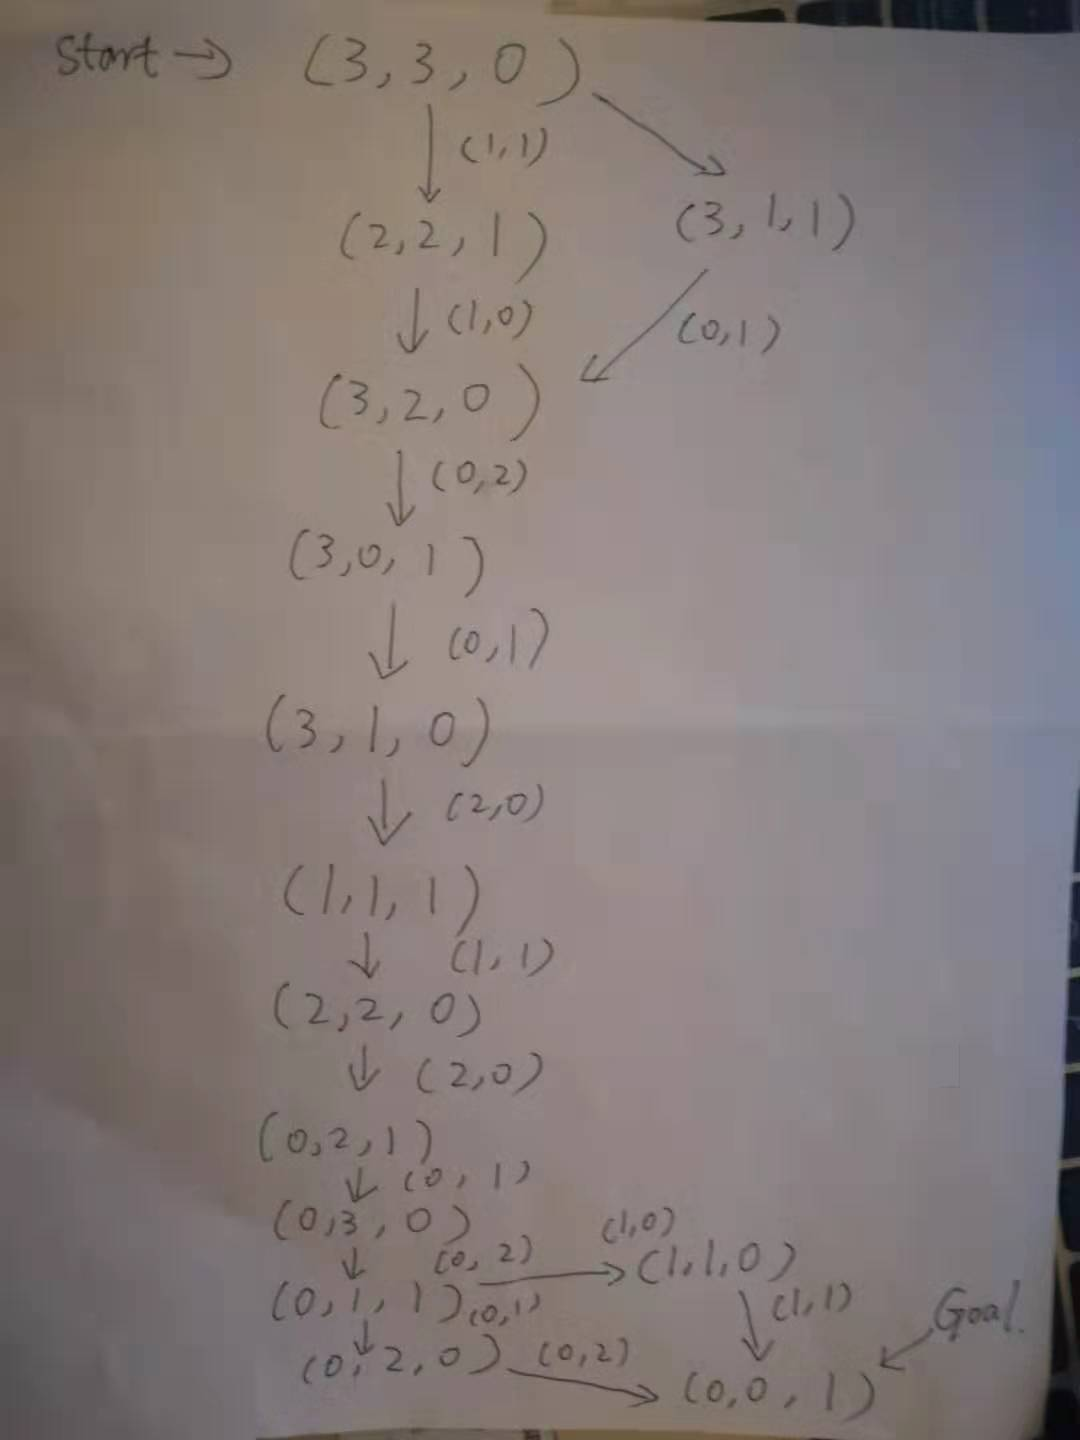 Start → (3,3,0)
(1,1)
(2,2,1) (3,1,1)
(1,0) (0,1)
(3,2,0)
(0,2)
(3,0,1)
(0,1)
(3,1,0)
(2,0)
(1,1,1)
(1,1)
(2,2,0)
(2,0)
(0,2,1)
(0,1)
(0,3,0) (1,0)
(0,2) (1,1,0)
(0,1,1) (0,1) (1,1) Goal.
(0,2,0) (0,2) (0,0,1)